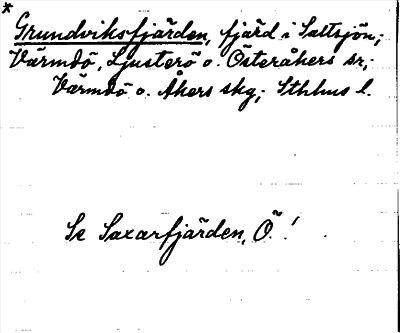 * Grundviksfjärden, fjärd i Saltsjön;
Värmdö, Ljusterö o. Österåkers sr,
Värmdö o. Åkers skg; Sthlms l.
Se Saxarfjärden, Ö!